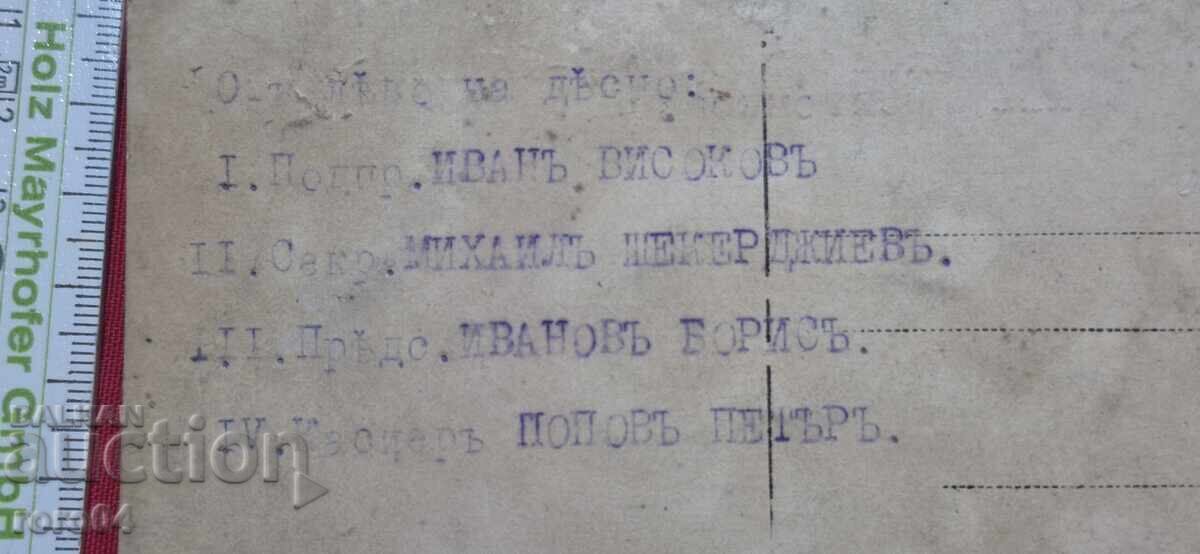 Отъ лѣво на дѣсно:
I. Подпр. ИВАНЪ ВИСОКОВЪ
II. Секр. МИХАИЛЪ ШЕКЕРДЖИЕВЪ.
III. Прѣдс. ИВАНОВЪ БОРИСЪ.
IV. Касиеръ ПОПОВЪ ПЕТЪРЪ.
Holz Mayrhofer GmbH
BALKAN
auction